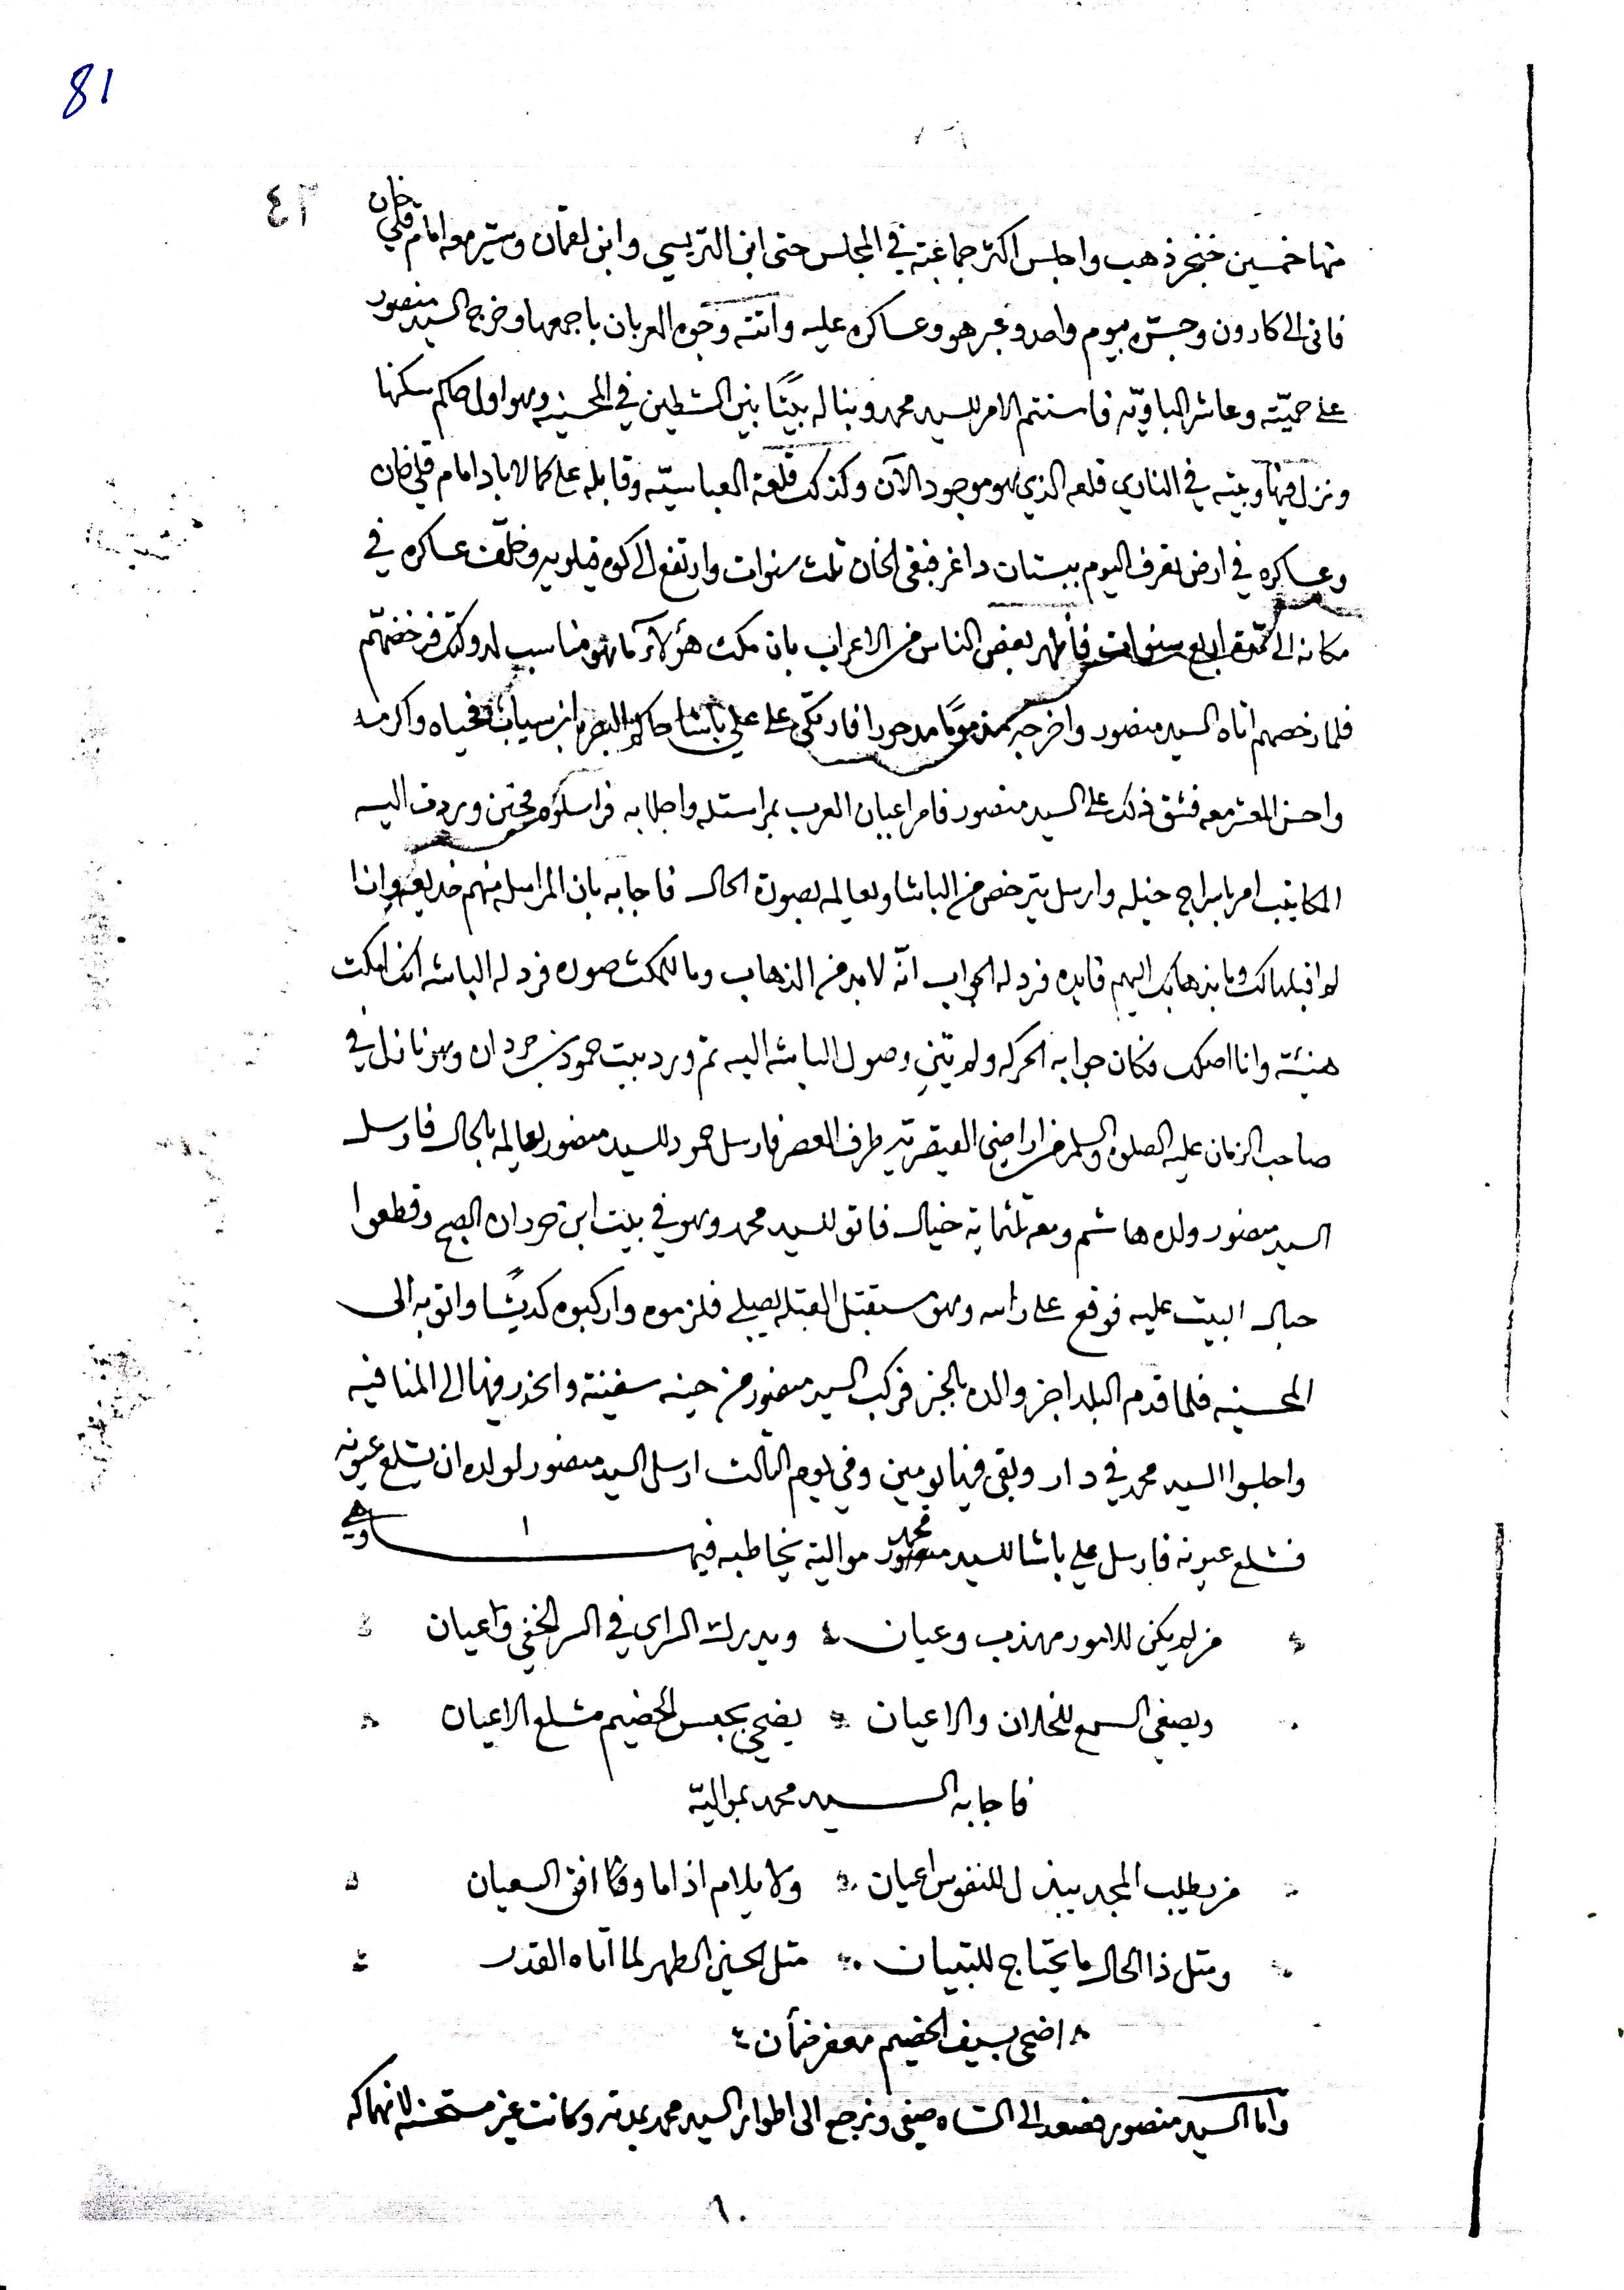 81
٤٢
منها خمسين خنجر ذهب واجلس اكثر جماعته في المجلس حتى ابن التريسي وابن لقمان وسيّر معه امام قلي خان
فاتى الى كارون وجسّره بيوم واحد وعبر هو وعساكره عليه واتته وجوه العربان باجمعها وخرج السيد منصور
على حميّته وعاشر الباويّه فاستتم الامر للسيد محمد وبنا له بيتًا بين الشطين في المحسنيه وهو اول حاكم سكنها
ونزل فيها وبيته في النادي قلعه الذي هو موجود الآن وكذلك قلعة العباسيّه وقابله على كمالاباد امام قلي خان
وعساكره في ارض تعرف اليوم ببستان داغر فبقى الخان ثلث سنوات وارتفع الى كوه قيلويه وخلّفت عساكره في
مكانه الى اربع سنوات فأظهر بعض الناس من الاعراب بان مكث هؤلاء ما هو مناسب لدولتك فرخصهم
فلما رخصهم اتاه السيد منصور واخرجه مذمومًا مدحورا فارتكى على علي باشا حاكم البصره ابن سياب فحياه واكرمه
واحسن المعشر معه فشق ذلك على السيد منصور فامر اعيان العرب بمراسلته واجلابه فراسلوه فحين وردت اليه
المكاتيب امر باسراج خيله وارسل يترخص من الباشا ويعالمه بصورة الحال فاجابه بان المراسله منهم خديعه وانا
لم اقبلها لك وما بذهابك اليهم فايده فرد له الجواب انّه لا بد من الذهاب وما للمكث صوره فرد له الباشه انك امكث
هنيئة وانا اصلك فكان جوابه الحركه ولم يتنى وصول الباشه اليه ثم ورد بيت حمود بن جردان وهو نازل في
صاحب الزمان عليه الصلوه والسلم من اراضي القيصريّه طرف العصر فارسل حمود للسيد منصور يعالمه بالحال فارسل
السيد منصور ولده هاشم ومعه ثلثمايه خيال فاتو للسيد محمد وهو في بيت ابن جردان الصبح وقطعوا
حبال البيت عليه فوقع على راسه وهو مستقبل القبله يصلي فلزموه واركبوه كديشًا واتو به الى
المحسنيه فلما قدم البلد اخبر والده بالخبر فركب السيد منصور من حينه سفينة وانحدر فيها الى المنافيه
واجلسوا السيد محمد في دار وبقى فيها يومين وفي يوم الثالث ارسل السيد منصور لولده ان يشلع عيونه
فشلع عيونه فارسل علي باشا للسيد محمد موالية يخاطبه فيها وهي
من لم يكن للامور مهذب وعيان ويدرك الراي في السر الخفي وعيان
ويصغي السمع للخلان والاعيان يضحي بحبس الخصيم مشلع الاعيان
فاجابه السيد محمد بمواليّه
من يطلب المجد يبذل للنفوس اعيان ولا يلام اذا ما وفا افق السعيان
ومثل ذا الحال ما يحتاج للتبيان مثل الحسين الطهر لما اتاه القدر
اضحى بسيف الخصيم معفر ضمأن
واما السيد منصور فصعد الى الشاه صفي ونرجع الى اطوار السيد محمد بمدته وكانت غير مستحسنه لانهماكه
٦٠